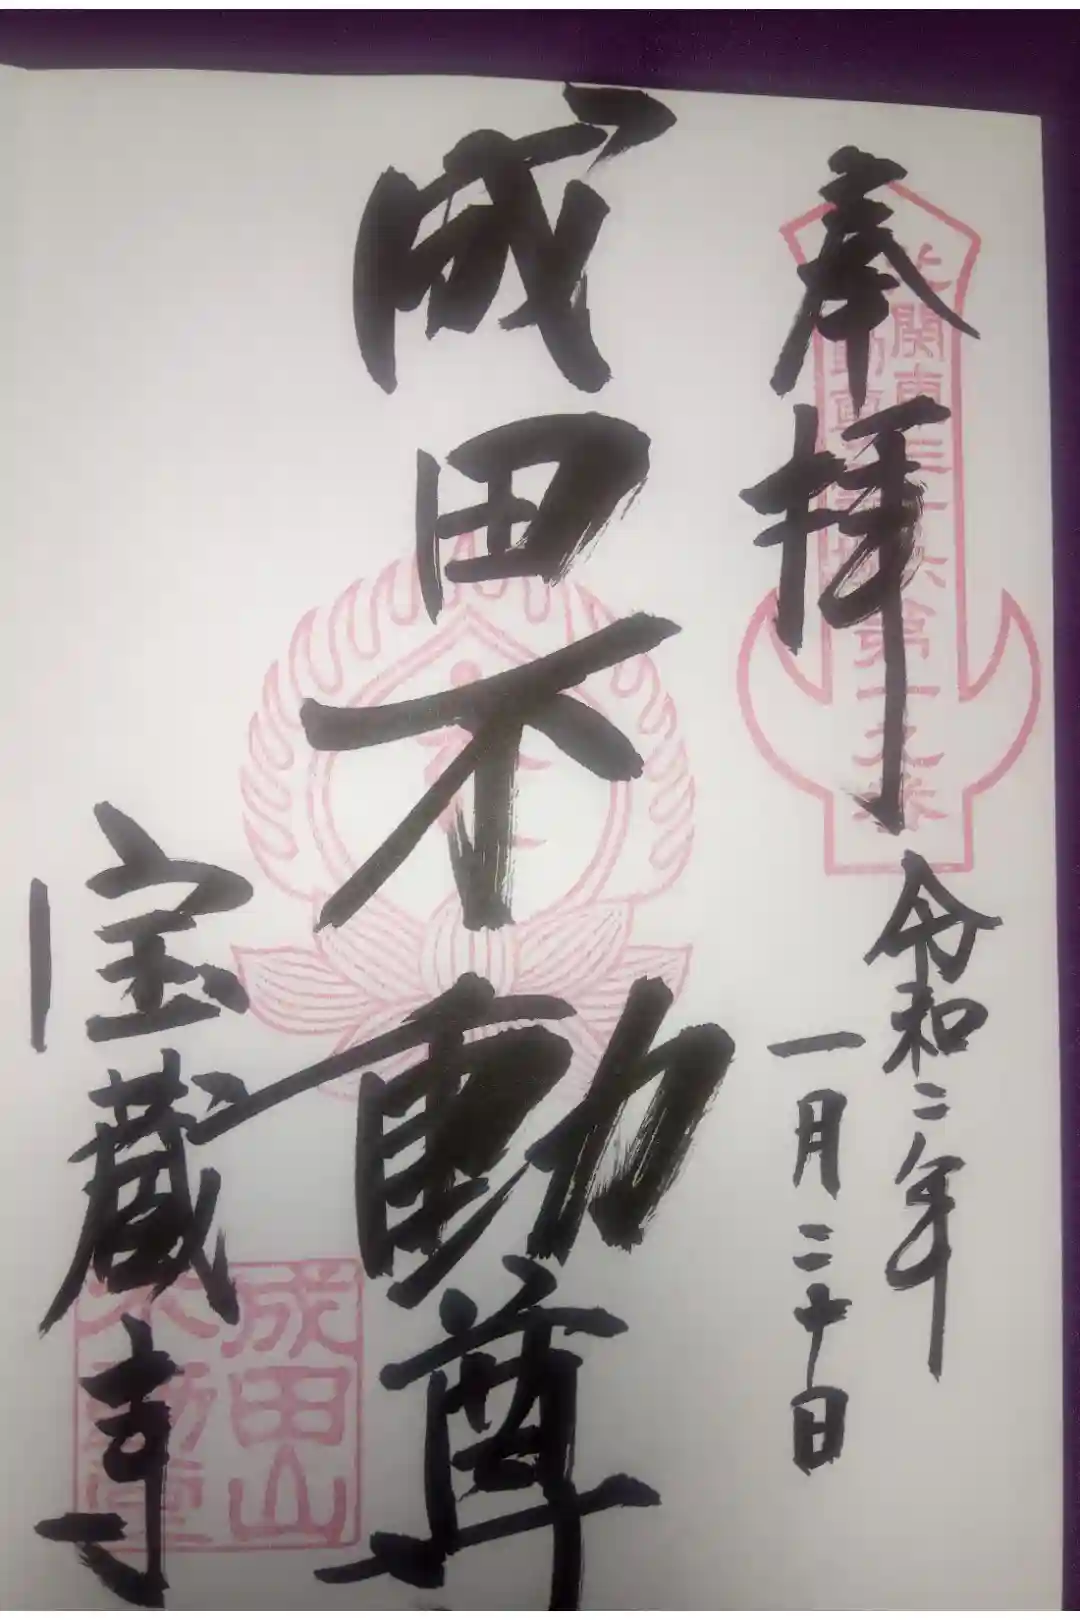 奉拝
北関東三十六
不動尊霊場
第一之替
令和二年
一月二十日
成田不動尊
宝蔵寺
成田山
不動堂